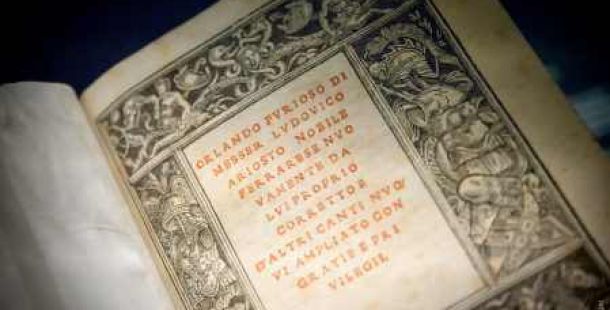 ORLANDO FVRIOSO DI
MESSER LVDOVICO
ARIOSTO NOBILE
FERRARESE NVO
VAMENTE DA
LVI PROPRIO
CORRETTO E
D'ALTRI CANTI NVO/
VI AMPLIATO CON
GRATIE E PRI
VILEGII.